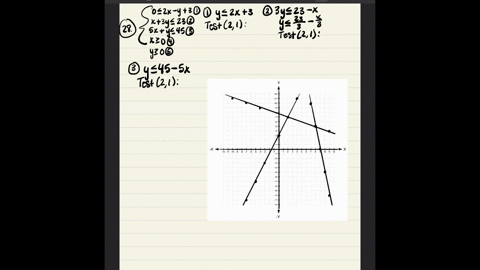 28.
0 ≤ 2x - y + 3 ①
x + 3y ≤ 23 ②
5x + y ≤ 45 ③
x ≥ 0 ④
y ≥ 0 ⑤
① y ≤ 2x + 3
Test (2,1):
② 3y ≤ 23 - x
y ≤ 23/3 - x/3
Test (2,1):
③ y ≤ 45 - 5x
Test (2,1):